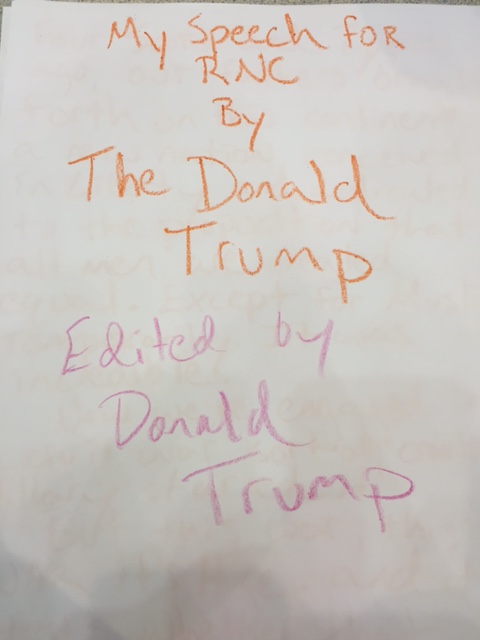 My Speech for
RNC
By
The Donald
Trump
Edited by
Donald
Trump